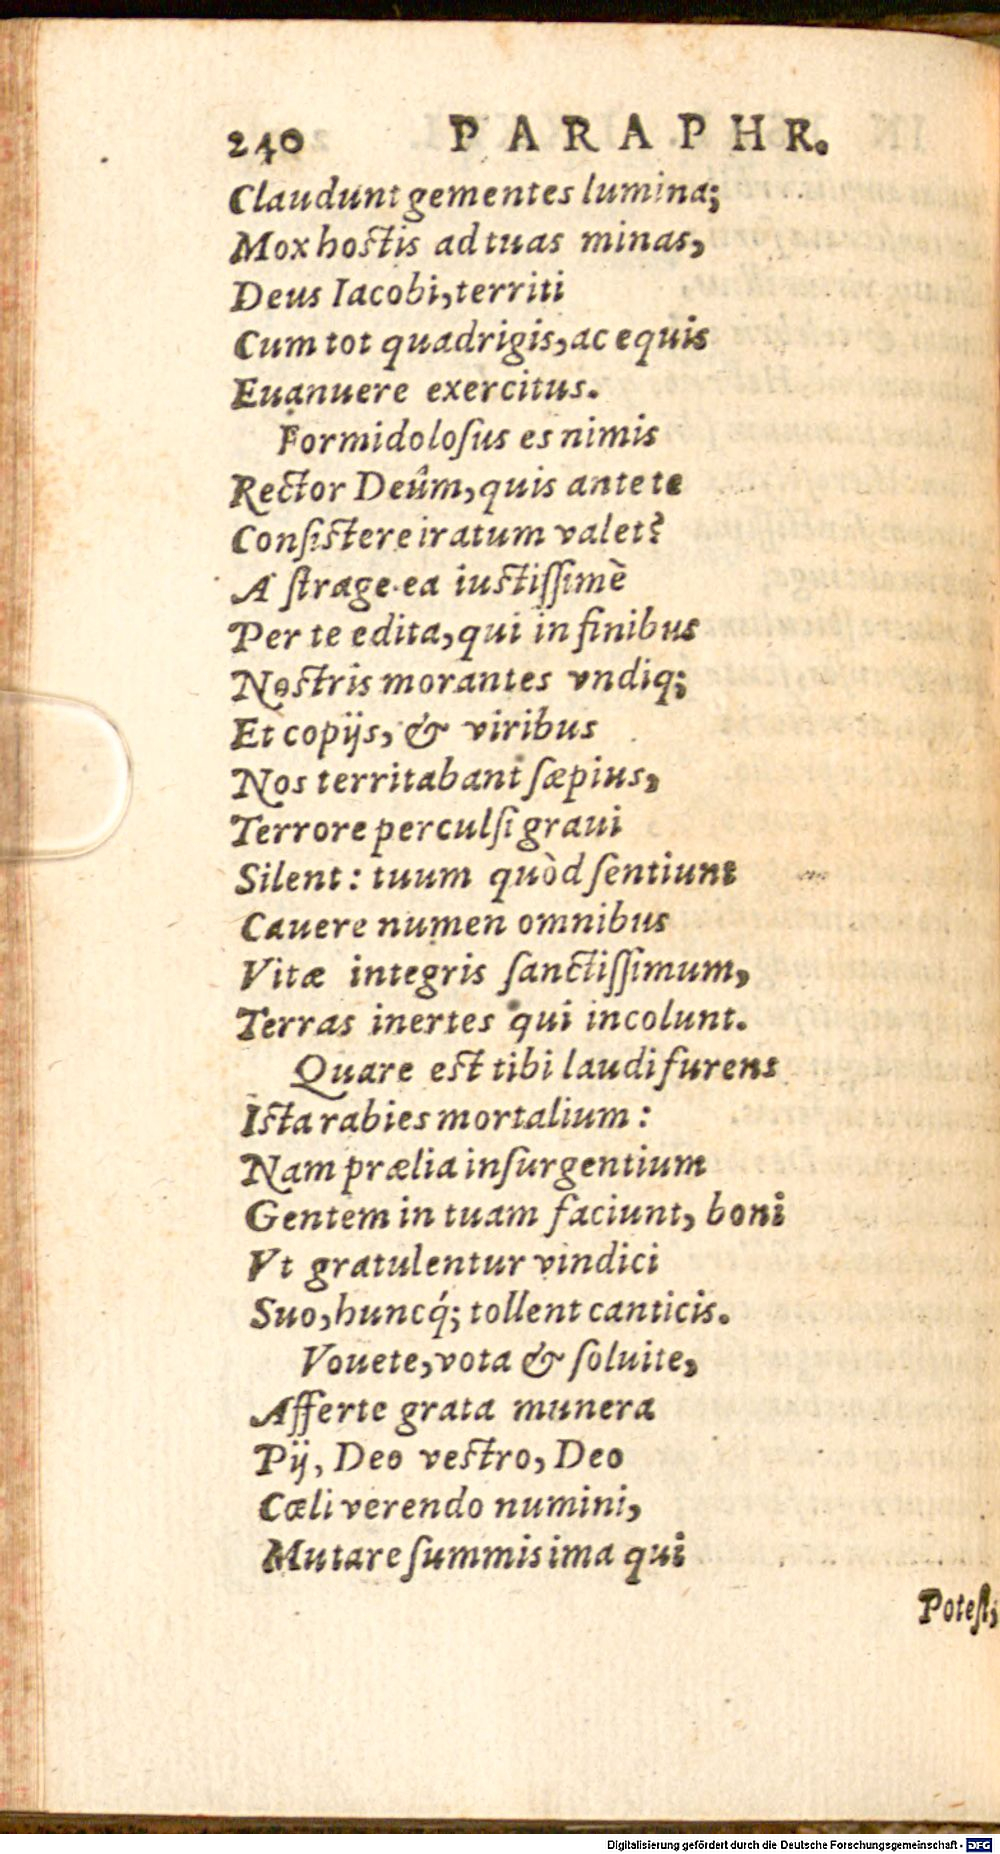 240 PARAPHR.
Claudunt gementes lumina;
Mox hostis ad tuas minas,
Deus Iacobi, territi
Cum tot quadrigis, ac equis
Euanuere exercitus.
Formidoloſus es nimis
Rector Deûm, quis ante te
Conſistere iratum valet?
A ſtrage ea iustiſſimè
Per te edita, qui in finibus
Nostris morantes vndiq;
Et copijs, & viribus
Nos territabant ſæpius,
Terrore perculſi graui
Silent: tuum quòd ſentiunt
Cauere numen omnibus
Vitæ integris ſanctiſſimum,
Terras inertes qui incolunt.
Quare est tibi laudi furens
Ista rabies mortalium:
Nam prælia inſurgentium
Gentem in tuam faciunt, boni
Vt gratulentur vindici
Suo, huncq́; tollent canticis.
Vouete, vota & ſoluite,
Afferte grata munera
Pij, Deo vestro, Deo
Cœli verendo numini,
Mutare ſummis ima qui
Poteſt,
Digitalisierung gefördert durch die Deutsche Forschungsgemeinschaft - DFG